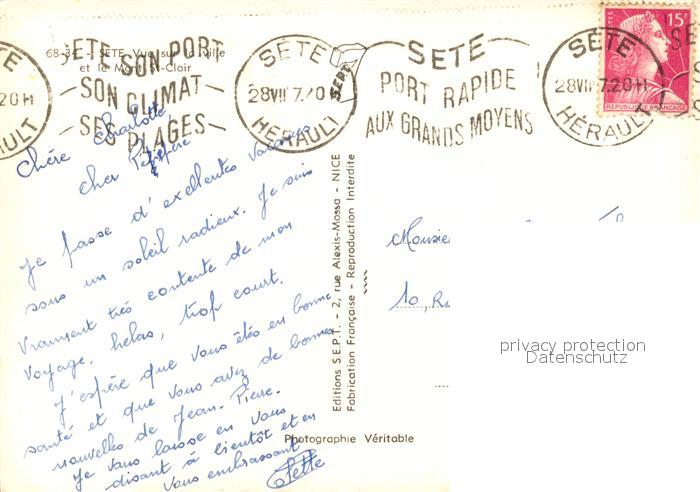 68-34 - SETE Vue sur la ville
et le Mont St-Clair
SETE SON PORT
SON CLIMAT
SES PLAGES
SÈTE
28 VII 7.20H
HÉRAULT
SEPT
SETE
PORT RAPIDE
AUX GRANDS MOYENS
SÈTE
28 VII 7.20H
HÉRAULT
15F
POSTES
REPUBLIQUE FRANÇAISE
Chère Charlotte
cher Pépépère
Je passe d'excellentes vacances
sous un soleil radieux. Je suis
vraiment très contente de mon
voyage, hélas, trop court.
J'espère que vous êtes en bonne
santé et que vous avez de bonnes
nouvelles de Jean-Pierre.
Je vous laisse en vous
disant à bientôt et en
vous embrassant
Editions S.E.P.T. - 2, rue Alexis-Mossa - NICE
Fabrication Française - Reproduction Interdite
Photographie Véritable
Monsie
10, Ru
privacy protection
Datenschutz